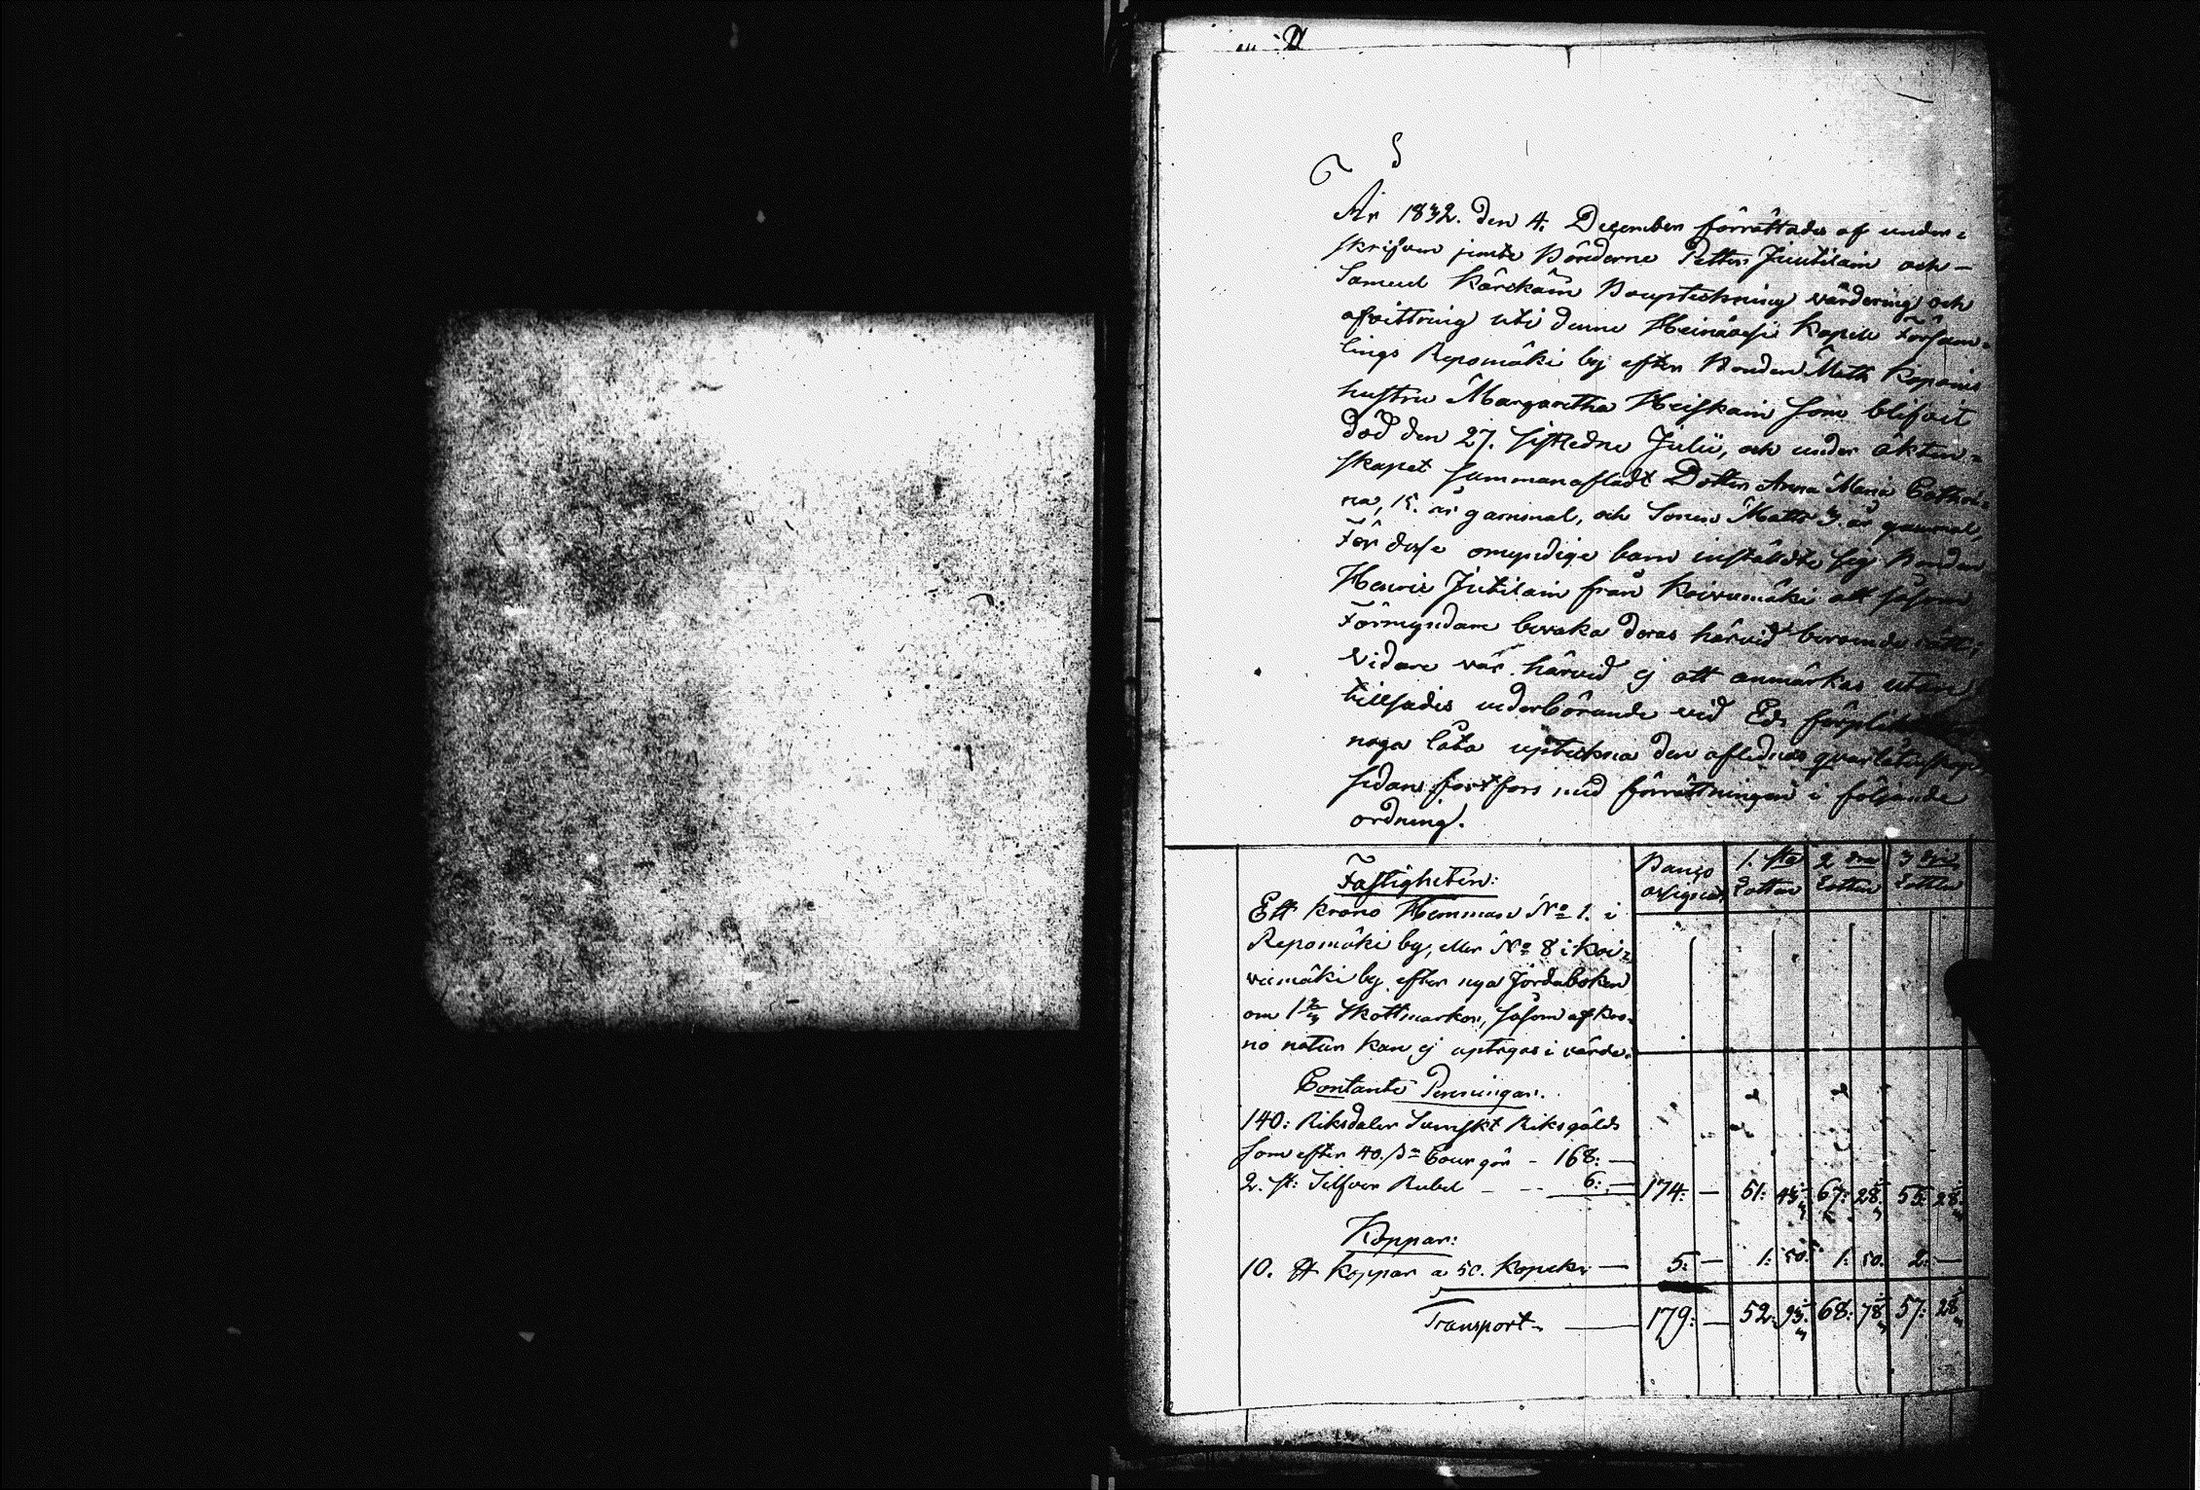 År 1832. den 4. December förrättades af under=
skrifven jemte Bönderne Petter Juutilain och
Samuel Kärckäin Bouptekning värdering och
afvittring uti denne Heinävesi Kapell Försam=
lings Repomäki by efter Bonden Math Kopains
hustru Margaretha Heiskain som blifvit
död den 27. sistledne Julii, och under äkten=
skapet sammanafladt Dotter Anna Maria Catha=
na, 15. år gammal, och Sonen Matts 3. år gammal,
För desse omyndige barn inställdte sig Bonden
Henric Jutilain från Koivumäki att såsom
Förmyndare bevaka deras härvid beroende rätt;
Vidare var härvid ej att anmärkas utan
tillsades vederbörande vid Eds
noga låta uptekna den aflednes qvarlåtenskap
sedan fortfors med förrättningen i följande
ordning.
Fastigheten:
Ett krono Hemman No 1. i
Repomäki by, eller No 8 i Koi=
vumäki by efter nya Jordaboken
om 1 Skattmarker, såsom af kro=
no natur kan ej uptagas i värde.
Boets 1.sta Lotten 2 dra Lotten 3 dje Lotten
Contante Penningar.
140: Riksdaler Svenskt Riksgälds
som efter 40. gör - 168: —
2. st: Silfver Rubel - - 6: — 174: — 51: 67: 55:
Koppar:
10. ℔ Koppar a 50. Kopek — 5: — 1: 50. 1: 50. 2: —
Transport — 179: — 52: 68: 57: